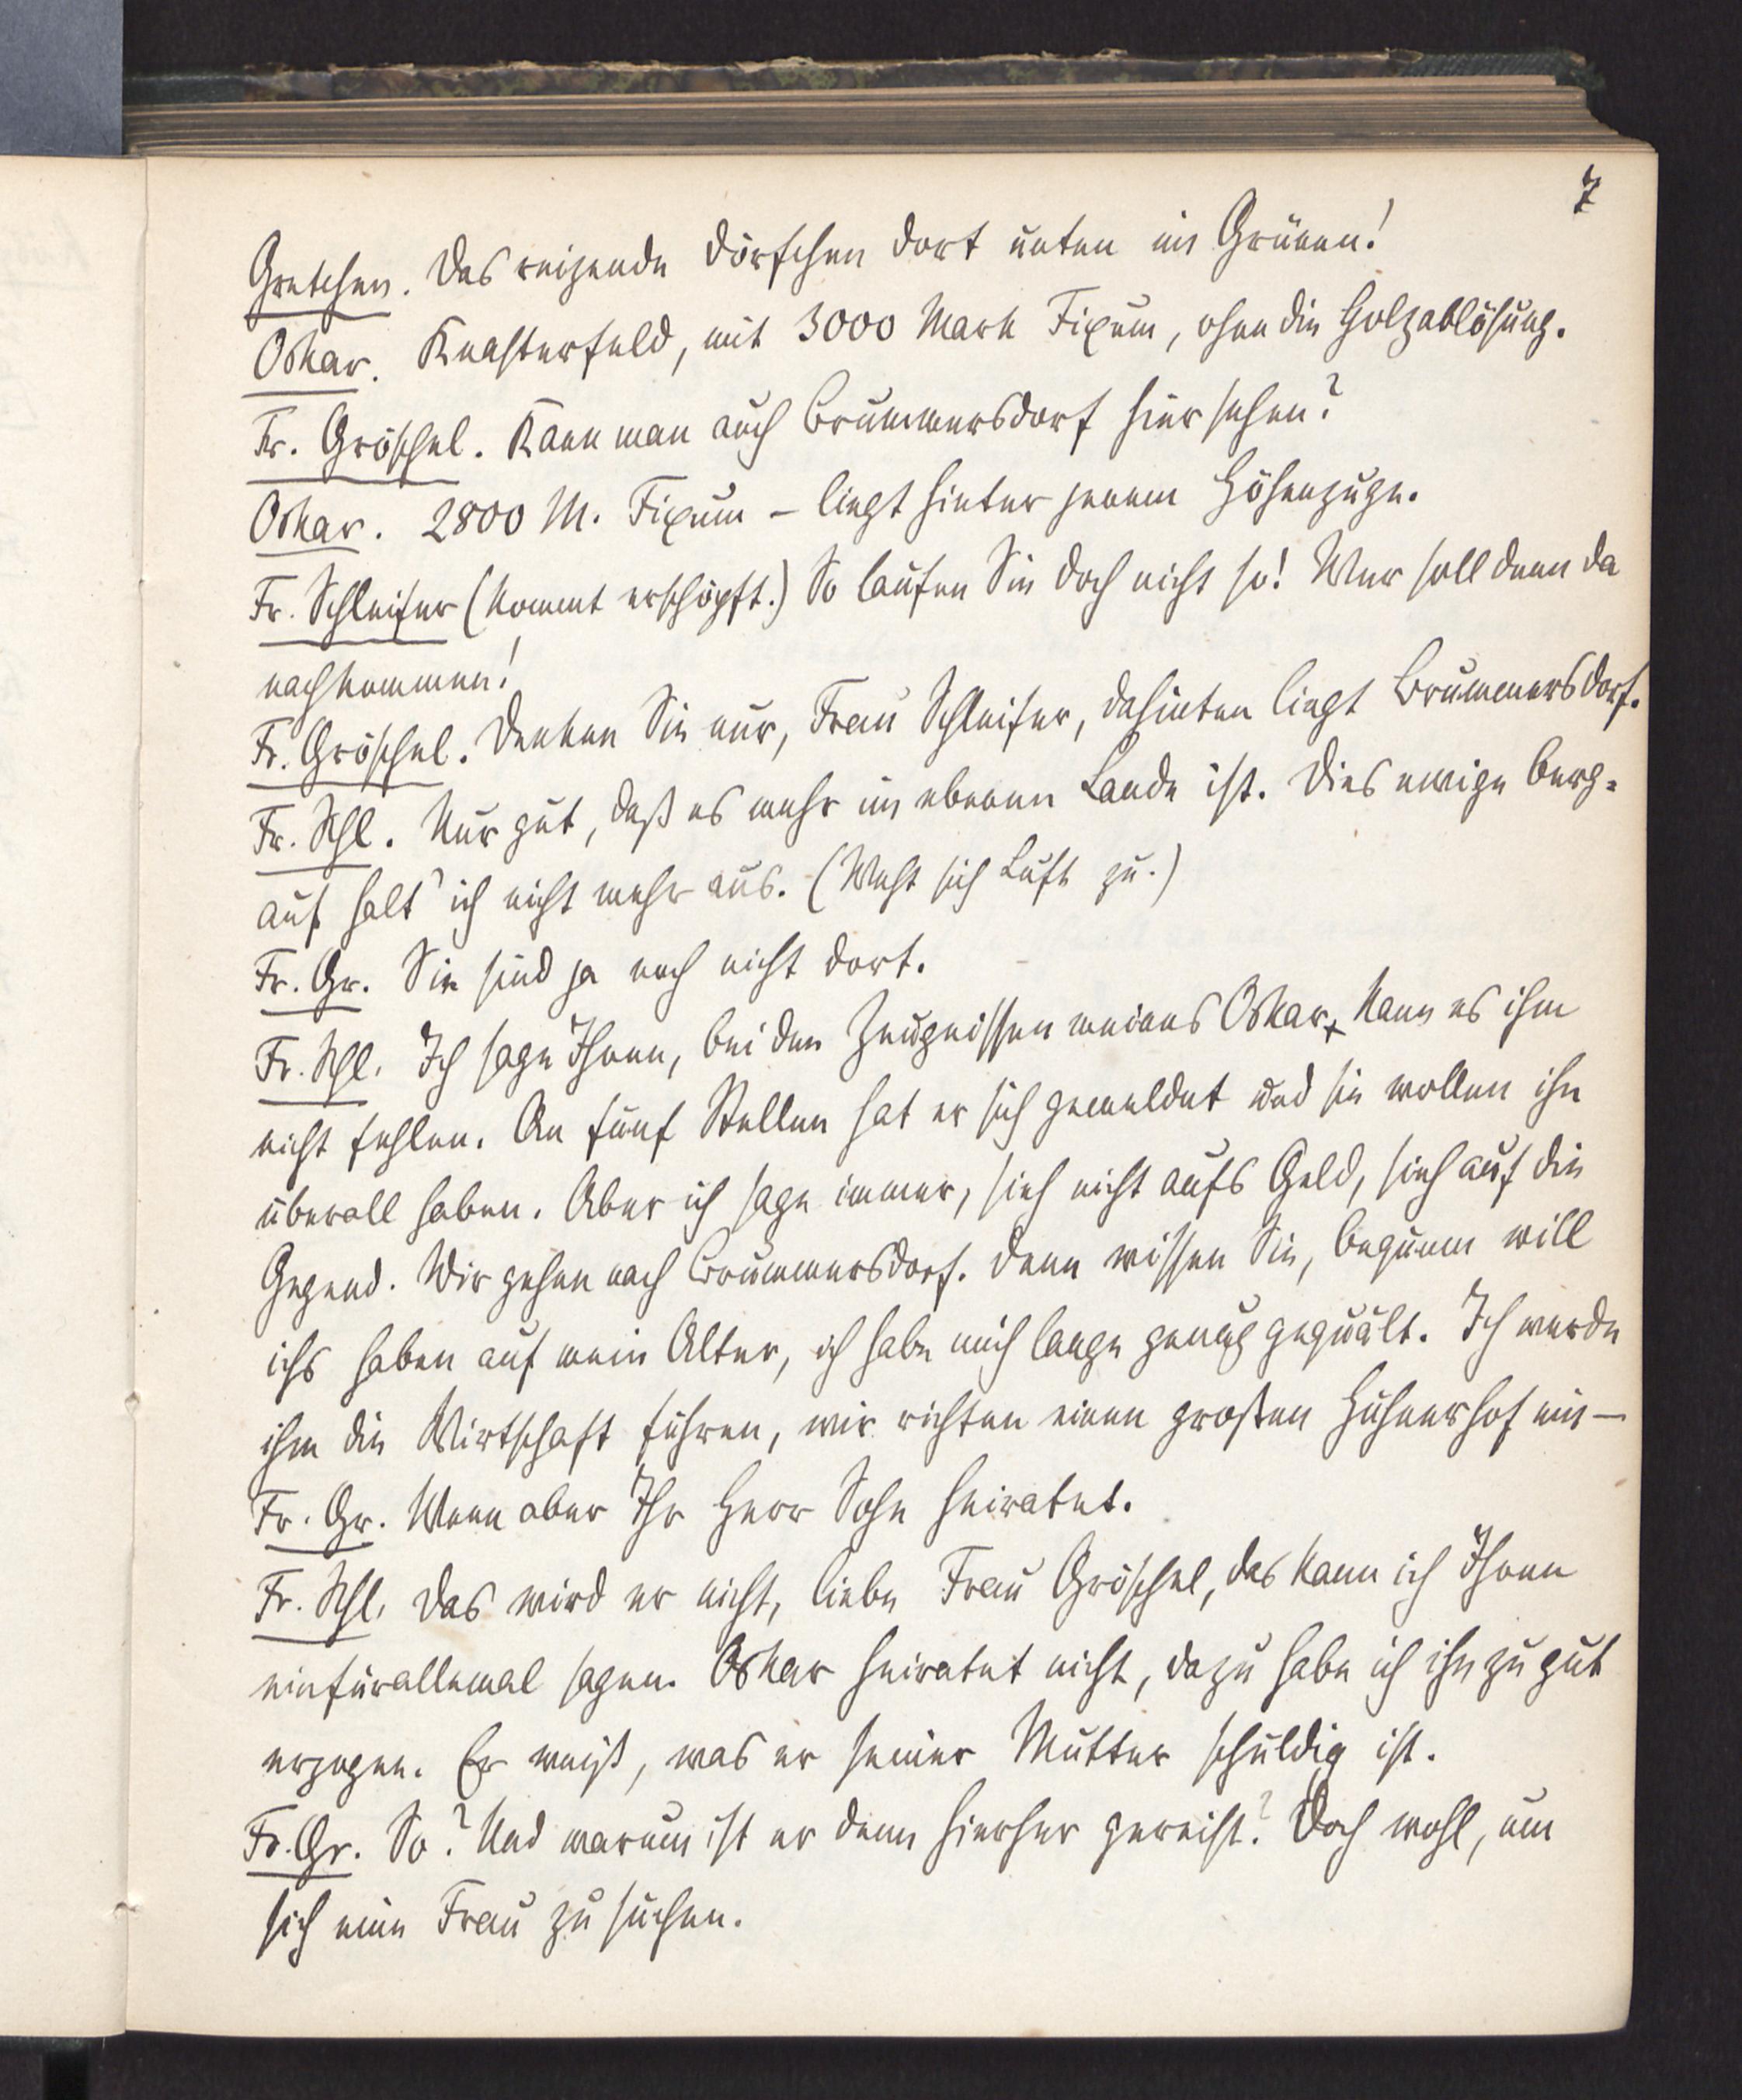 7
Gretchen. Das reizende Dörfchen dort unten im Grünen!
Oskar. Knasterfeld, mit 3000 Mark Fixum, ohne die Holzablösung.
Fr. Gröschel. Kann man auch Brummersdorf hier sehen?
Oskar. 2800 M. Fixum – liegt hinter jenem Höhenzuge.
Fr. Schleifer (kommt erschöpft.) So laufen Sie doch nicht so! Wer soll denn da
nachkommen!
Fr. Gröschel. Denken Sie nur, Frau Schleifer, dahinten liegt Brummersdorf.
Fr. Schl. Nur gut, daß es mehr im ebenen Lande ist. Dies ewige berg-
auf halt' ich nicht mehr aus. (Weht sich Luft zu.)
Fr. Gr. Sie sind ja noch nicht dort.
Fr. Schl. Ich sage Ihnen, bei den Zeugnissen meines Oskar kann es ihm
nicht fehlen. An fünf Stellen hat er sich gemeldet und sie wollen ihn
überall haben. Aber ich sage immer, sieh nicht aufs Geld, sieh auf die
Gegend. Wir gehen nach Brummersdorf. Denn wissen Sie, bequem will
ichs haben auf mein Alter, ich habe mich lange genug gequält. Ich werde
ihm die Wirtschaft führen, wir richten einen großen Hühnerhof ein –
Fr. Gr. Wenn aber Ihr Herr Sohn heiratet.
Fr. Schl. Das wird er nicht, liebe Frau Gröschel, das kann ich Ihnen
einfürallemal sagen. Oskar heiratet nicht, dazu habe ich ihn zu gut
erzogen. Er weiß, was er seiner Mutter schuldig ist.
Fr. Gr. So? Und warum ist er denn hierher gereist? Doch wohl, um
sich eine Frau zu suchen.